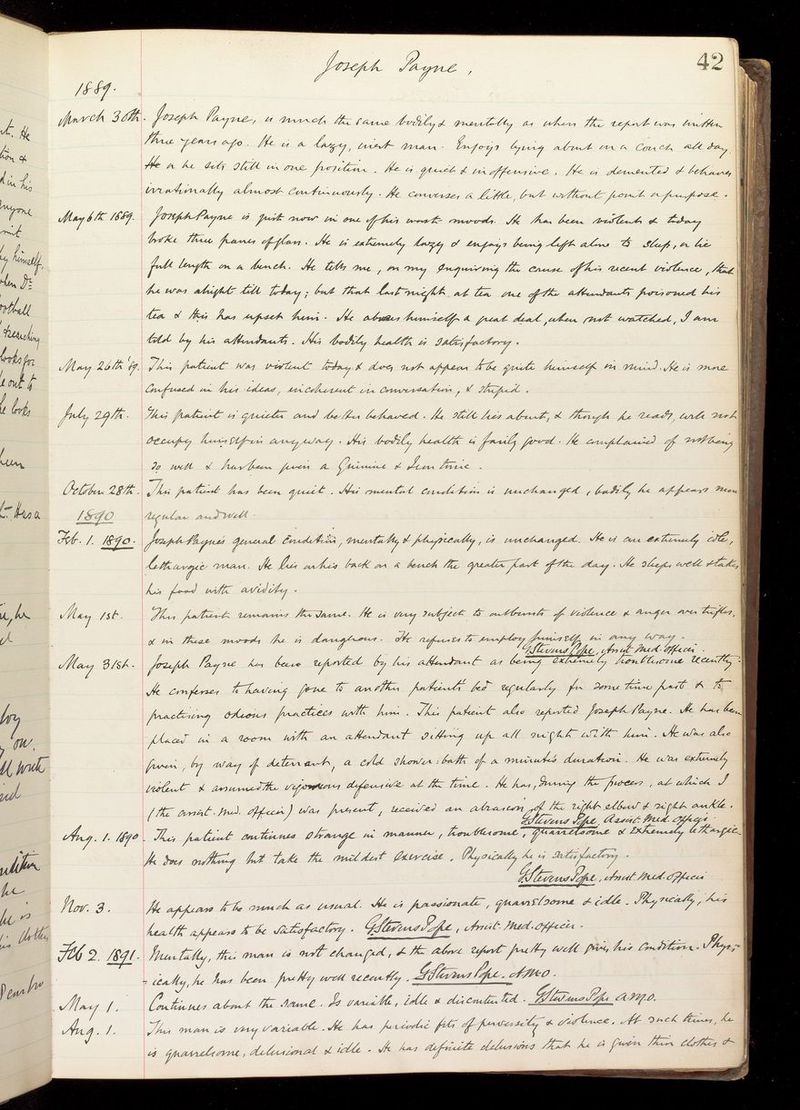 42
Joseph Payne.
1889.
March 30th. Joseph Payne, is much the same bodily & mentally as when the report was written
three years ago. He is a lazy, inert man. Enjoys lying about on a couch all day
He or he sits still in one position. He is quiet & inoffensive. He is demented & behaves
irrationally almost continuously. He converses a little, but without point or purpose.
May 6th 1889. Joseph Payne is just now in one of his worst moods. He has been violent & today
broke three panes of glass. He is extremely lazy & enjoys being left alone to sleep, or lie
full length on a bench. He tells me, on my enquiring the cause of his recent violence, that
he was alright till today; but that last night at tea one of the attendants poisoned his
tea & this has upset him. He abuses himself a great deal, when not watched, I am
told by his attendants. His bodily health is satisfactory.
May 26th '89. This patient was violent today & does not appear to be quite himself in mind. He is more
confused in his ideas, incoherent in conversation, & stupid.
July 29th. This patient is quieter and better behaved. He still lies about, & though he reads, will not
occupy himself in any way. His bodily health is fairly good. He complained of not being
so well & has been given a Quinine & Iron tonic.
October 28th. This patient has been quiet. His mental condition is unchanged, bodily he appears more
regular and well.
1890
Feb. 1. 1890. Joseph Payne's general condition, mentally & physically, is unchanged. He is an extremely idle,
lethargic man. He lies on his back on a bench the greater part of the day. He sleeps well & takes
his food with avidity.
May 1st. This patient remains the same. He is very subject to outbursts of violence & anger over trifles,
& in these moods he is dangerous. He refuses to employ himself in any way.
G Stevens Pope, Assist. Med. Officer.
May 31st. Joseph Payne has been reported by his attendant as being extremely troublesome recently.
He confesses to having gone to another patient's bed regularly for some time past & to
practising odious practices with him. This patient also reported Joseph Payne. He has been
placed in a room with an attendant sitting up all night with him. He was also
given, by way of deterrent, a cold shower-bath of a minute's duration. He was extremely
violent & assumed the vigorous defensive at the time. He has, during the process, at which I
(the assist. med. officer) was present, received an abrasion of the right elbow & right ankle.
G Stevens Pope, Assist. Med. Officer
Aug. 1. 1890. This patient continues strange in manner, troublesome, quarrelsome & extremely lethargic.
He does nothing but take the mildest exercise. Physically he is satisfactory.
G Stevens Pope, Assist. Med. Officer
Nov. 3. He appears to be much as usual. He is passionate, quarrelsome & idle. Physically, his
health appears to be satisfactory. G Stevens Pope, Assist. Med. Officer.
Feb 2. 1891. Mentally, this man is not changed, & the above report pretty well gives his condition. Phys-
ically, he has been pretty well recently. G Stevens Pope. A.M.O.
May 1. Continues about the same. Is variable, idle & discontented. G Stevens Pope A.M.O.
Aug. 1. This man is very variable. He has periodic fits of perversity & violence. At such times, he
is quarrelsome, delusional & idle. He has definite delusions that he is given thin clothes &